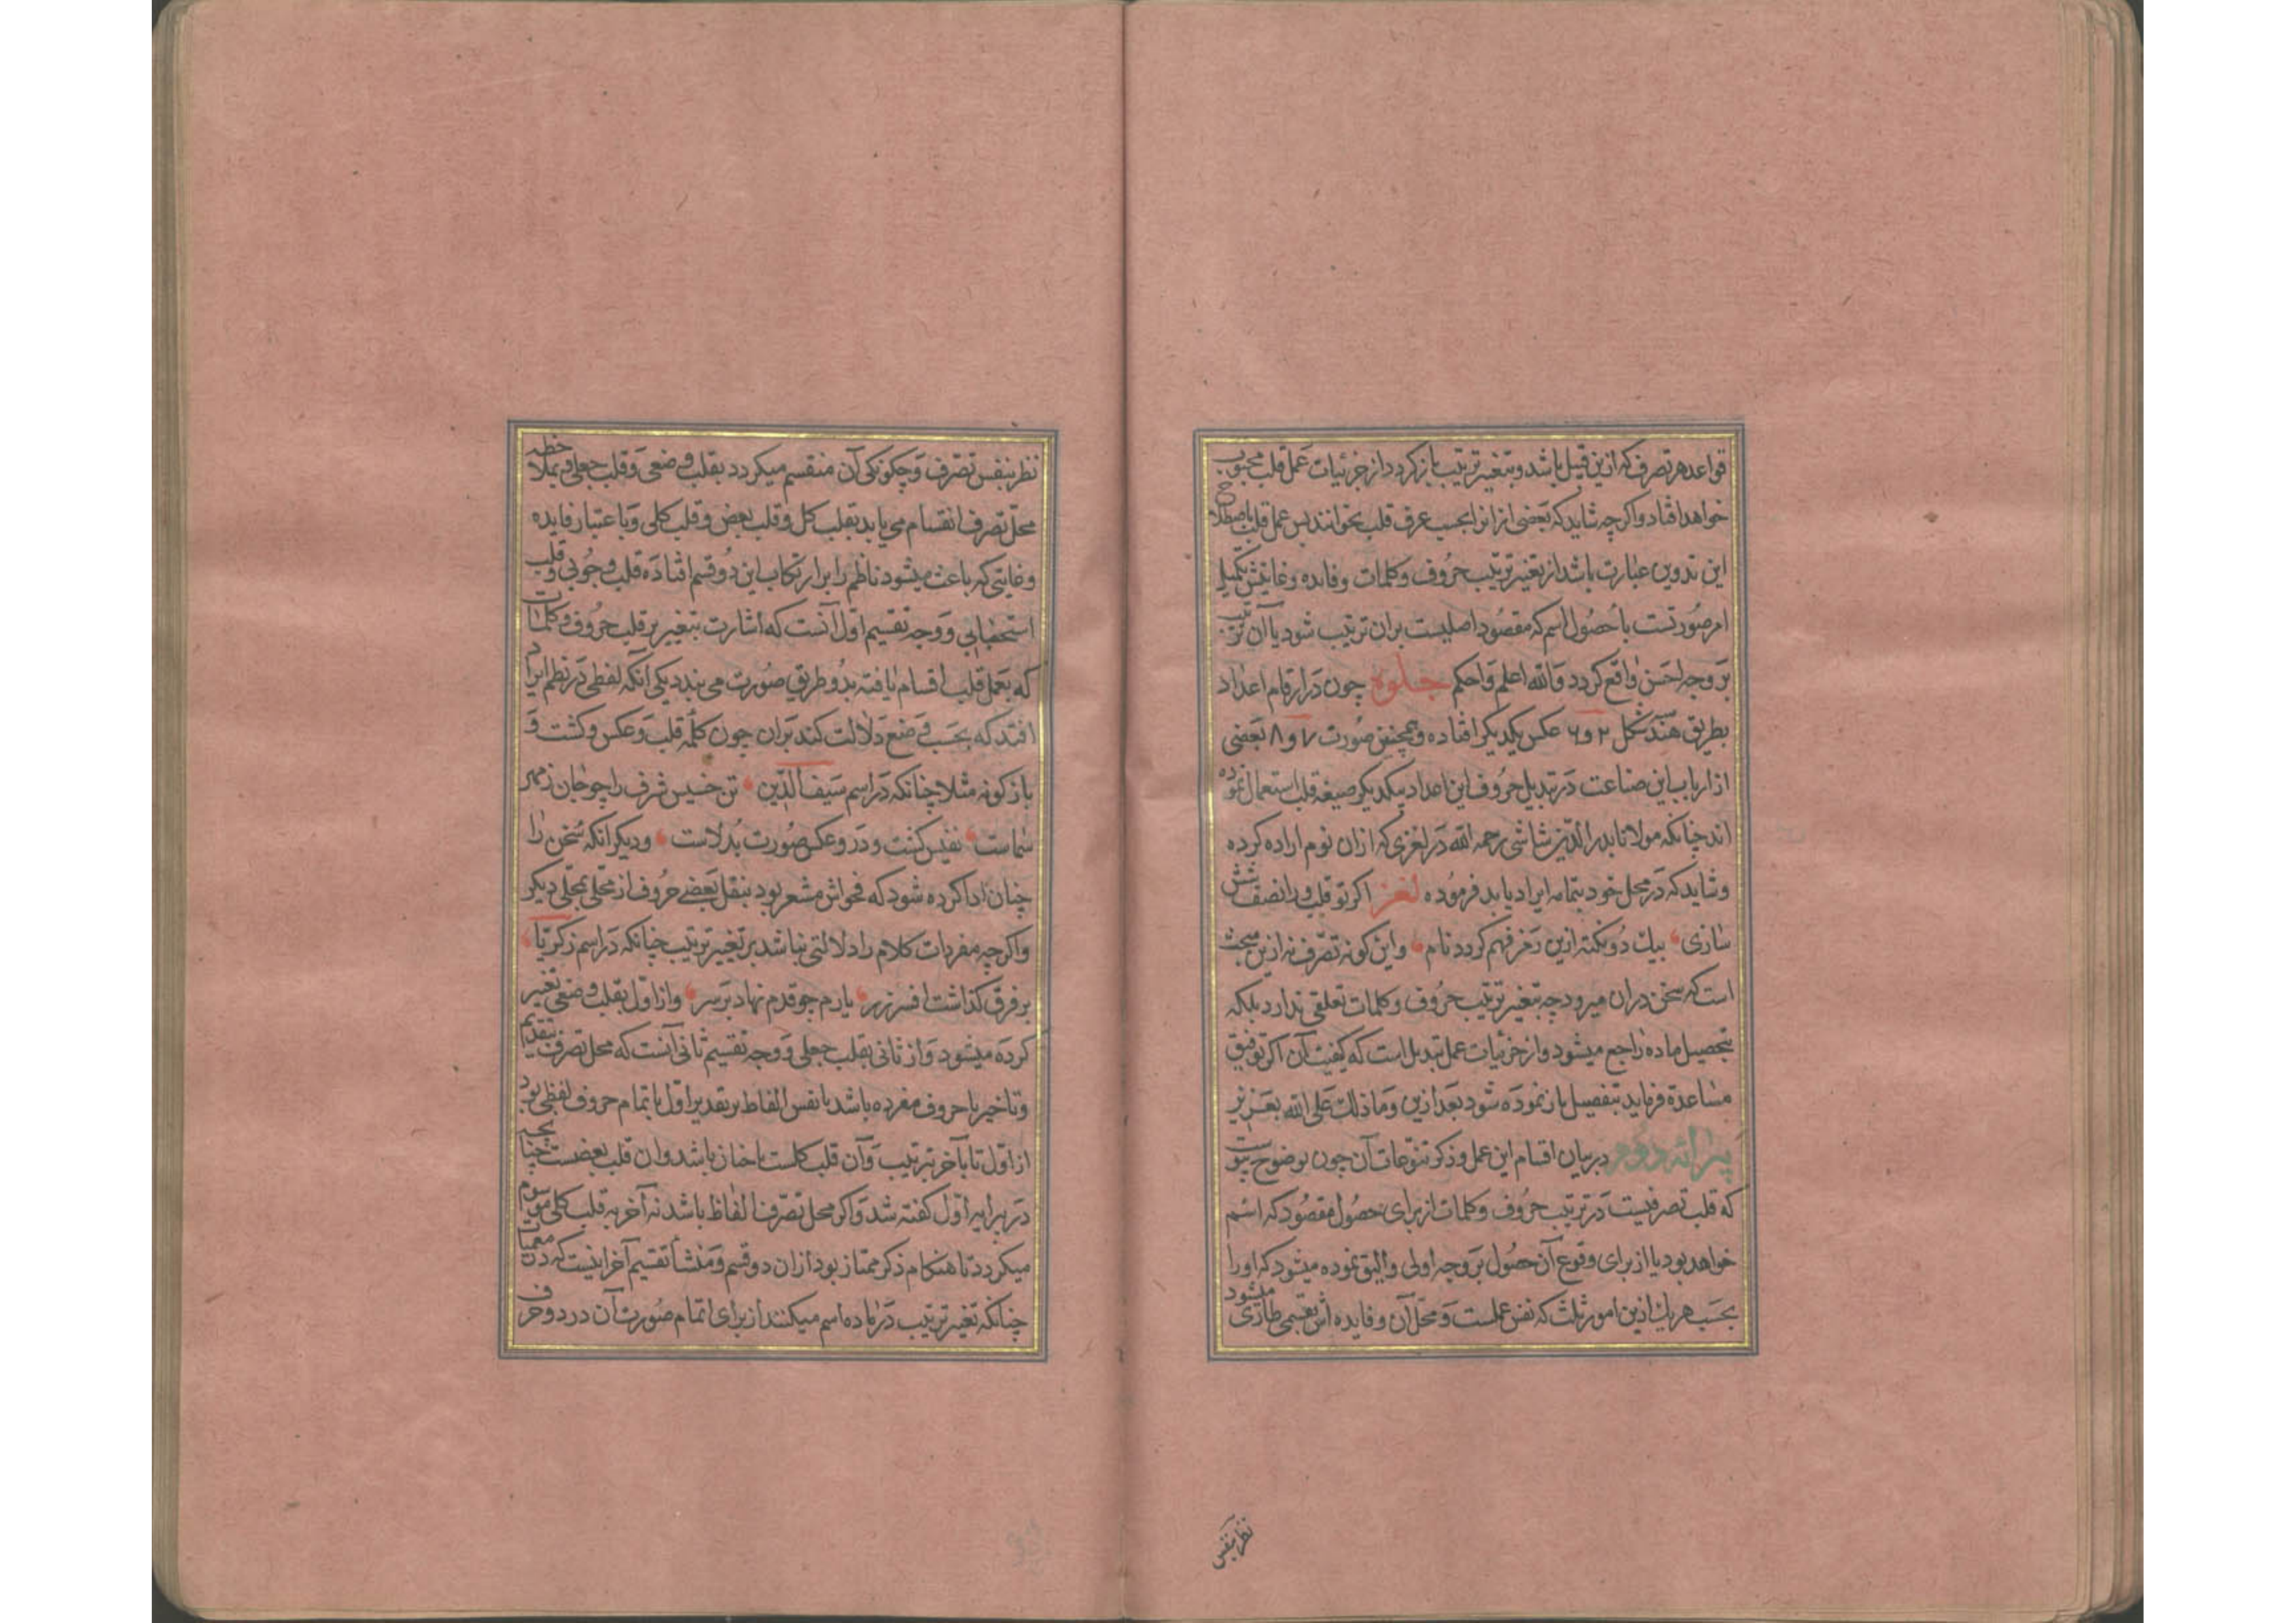 قواعد هر تصرف که ازین قبیل باشد و بتغییر ترتیب باز کردد از جزئیات عمل قلب محسوب
خواهد افتاد و اکر چه شاید که بعضی از انرا بحسب عرف قلب نخوانند پس عمل قلب باصطلاح
این تدوین عبارت باشد از تغییر ترتیب حروف و کلمات و فایده و غایتش تکمیل
امر صورتست با حصول اسم که مقصود اصلیست بران ترتیب شود یا آن ترتیب
بر وجه احسن واقع کردد والله اعلم واحکم جلوه چون در ارقام اعداد
بطریق هند شکل ۲ و ۶ عکس یکدیکر افتاده و همچنین صورت ۷ و ۸ بعضی
از ارباب این صناعت در تبدیل حروف این اعداد بیکدیکر صیغه قلب استعمال نموده
اند چنانکه مولانا بدر الدین شاشی رحمه الله در لغزی که از ان نوم اراده کرده
و شاید که در محل خود بتمامه ایراد یابد فرموده لغز اکر تو قلب ورا نصف شش
سازی بیک دو نکته ازین رمز فهم کردد نام و این کونه تصرف نه ازین مبحث
است که سخن دران میرود چه بتغییر ترتیب حروف و کلمات تعلقی ندارد بلکه
بتحصیل ماده راجع میشود و از جزئیات عمل تبدیل است که کیفیت آن اکر توفیق
مساعدة فرماید بتفصیل باز نموده شود بعد ازین وما ذلك علی الله بعزیز
پیرائه دوم در بیان اقسام این عمل و ذکر تنوعات آن چون بوضوح پیوست
که قلب تصرفیست در ترتیب حروف و کلمات از برای حصول مقصود که اسم
خواهد بود یا از برای وقوع آن حصول بر وجه اولی و الیق نموده میشود که اورا
بحسب هر یك ازین امور ثلث که نفس عملست و محل آن و فایده اش تقسیمی طاری میشود
نظر بنفس
نظر بنفس تصرف و چکونکی آن منقسم میکردد بقلب وضعی و قلب جعلی و بملاحظه
محل تصرف انقسام می یابد بقلب کل و قلب بعض و قلب کلی و با عتبار فایده
و غایتی که باعث میشود ناظم را بر ارتکاب این دو قسم افتاده قلب وجوبی و قلب
استحبابی و وجه تقسیم اول آنست که اشارت بتغییر بر قلب حروف و کلمات
که بعمل قلب اقسام یافته بدو طریق صورت می بندد یکی آنکه لفظی در نظم ایراد
افتد که بحسب وضع دلالت کند بران چون کلمه قلب و عکس و کشت و
باز کونه مثلا چنانکه در اسم سیف الدین تن خسیس شرف را چو جان ز مهر
شماست نفیس کشت و در و عکس صورت بدلاست و دیکر انکه سخن را
چنان ادا کرده شود که فحواش مشعر بود بنقل بعضی حروف از محلی بمحلی دیکر
و اکر چه مفردات کلام را دلالتی نباشد بر تغییر ترتیب چنانکه در اسم زکریا
بر فرق کذاشت افسر زر یارم چو قدم نهاد بر سر و از اول بقلب وضعی تعبیر
کرده میشود و از ثانی بقلب جعلی و وجه تقسیم ثانی آنست که محل تصرف بتقدیم
و تاخیر یا حروف مفرده باشد یا نفس الفاظ بر تقدیر اول یا تمام حروف لفظی بود
از اول تا بآخر بترتیب و آن قلب کلست یا خنان باشد و ان قلب بعضست چنانچه
در پیرایه اول کفته شد و اکر محل تصرف الفاظ باشد نه آخر به قلب کلی موسوم
میکردد تا هنکام ذکر ممتاز بود از ان دو قسم و منشأ تقسیم آخر اینست که در معمیات
چنانکه تغییر ترتیب در ماده اسم میکنند از برای اتمام صورت آن در دو حرف